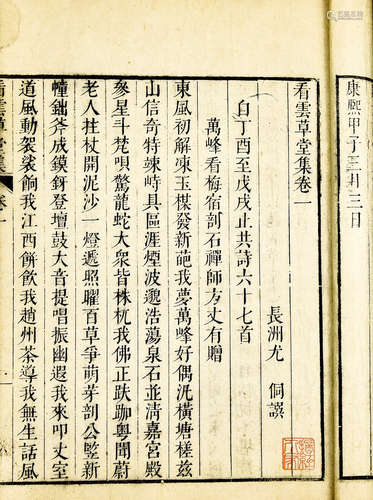 康熙甲子三月三日
看雲草堂集卷一
長洲尤侗譔
自丁酉至戊戌止共詩六十七首
萬峰看梅宿剖石禪師方丈有贈
東風初解凍玉楳發新葩我夢萬峰好偶汎橫塘槎茲
山信奇特竦峙具區涯煙波邈浩蕩泉石並清嘉宮殿
參星斗梵唄驚龍蛇大衆皆株杌我佛正趺跏粵聞蔚
老人拄杖開泥沙一燈遞照曜百草爭萌芽剖公豎新
幢鈯斧成鏌釾登壇鼓大音提唱振幽遐我來叩丈室
道風動袈裟餉我江西餅飲我趙州茶導我無生話風